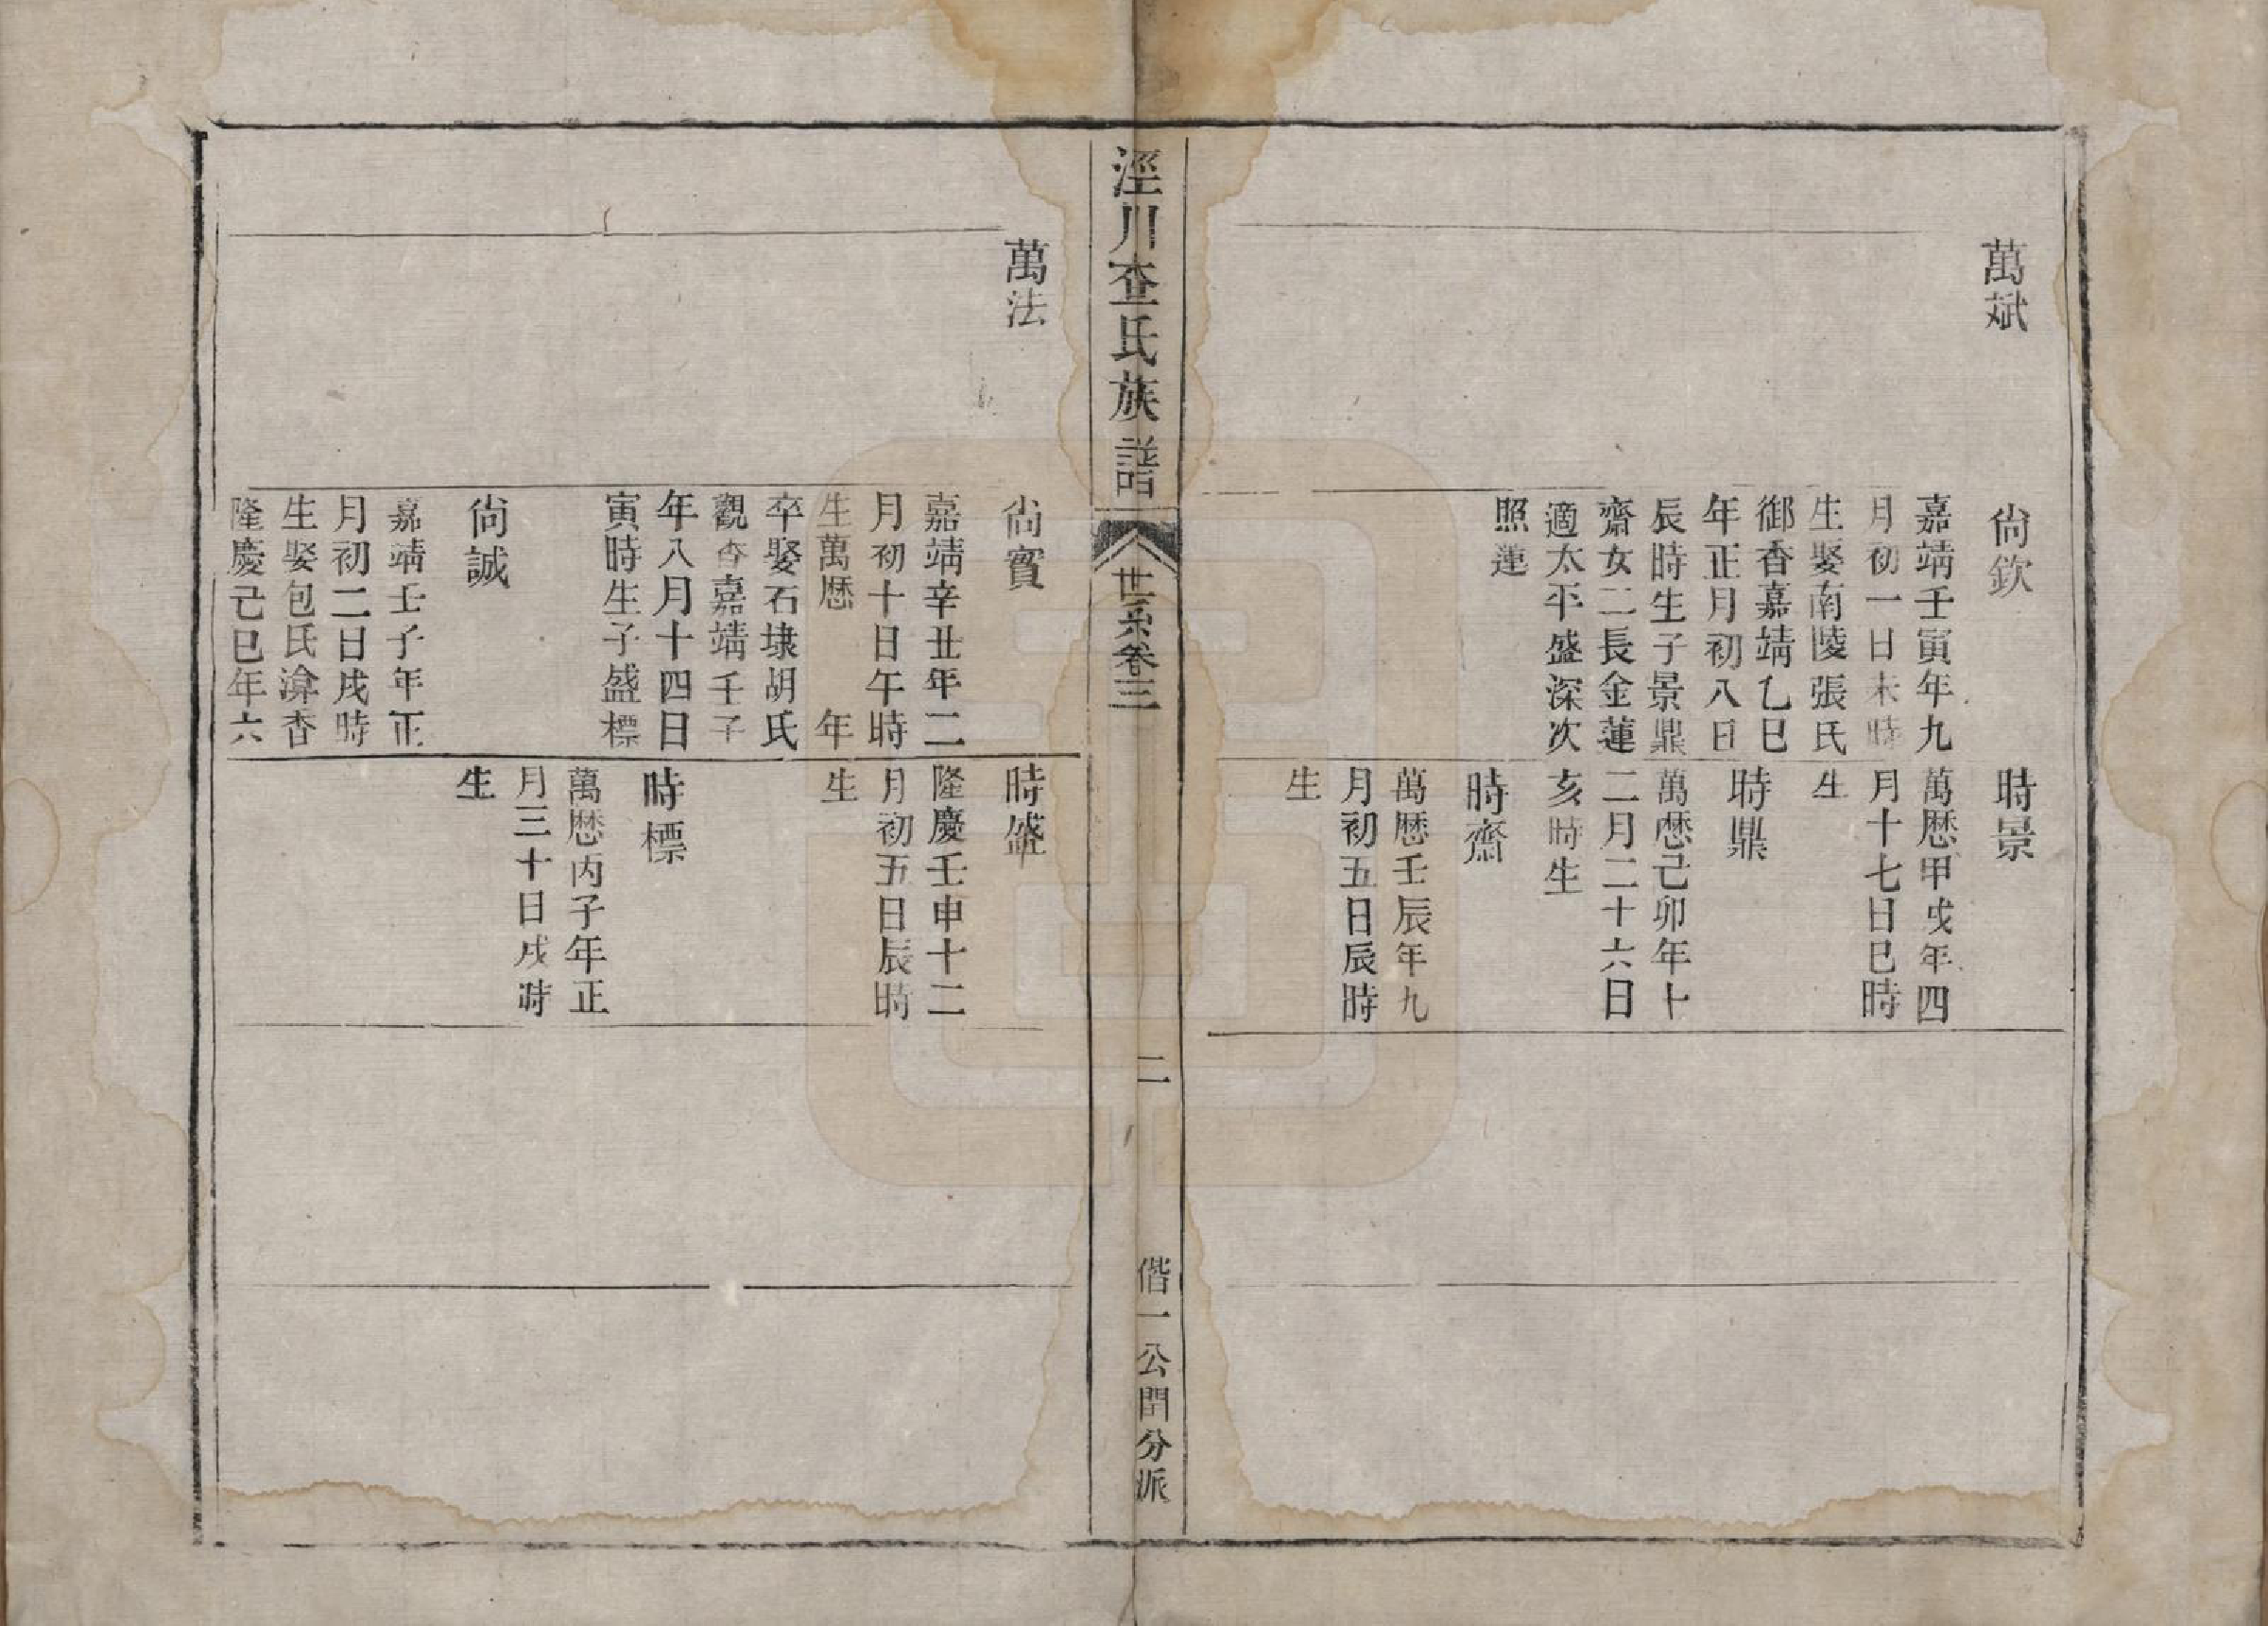 萬斌
尙欽
嘉靖壬寅年九
月初一日未時
生娶南陵張氏
御香嘉靖乙巳
年正月初八日
辰時生子景鼎
齋女二長金蓮
適太平盛深次
照蓮
時景
萬厯甲戌年四
月十七日巳時
生
時鼎
萬厯己卯年十
二月二十六日
亥時生
時齋
萬厯壬辰年九
月初五日辰時
生
涇川查氏族譜
世系卷三
二
偕一公門分派
萬法
尙賓
嘉靖辛丑年二
月初十日午時
生萬厯　　年
卒娶石埭胡氏
觀杏嘉靖壬子
年八月十四日
寅時生子盛標
尙誠
嘉靖壬子年正
月初二日戌時
生娶包氏渰杏
隆慶己巳年六
時盛
隆慶壬申十二
月初五日辰時
生
時標
萬厯丙子年正
月三十日戌時
生